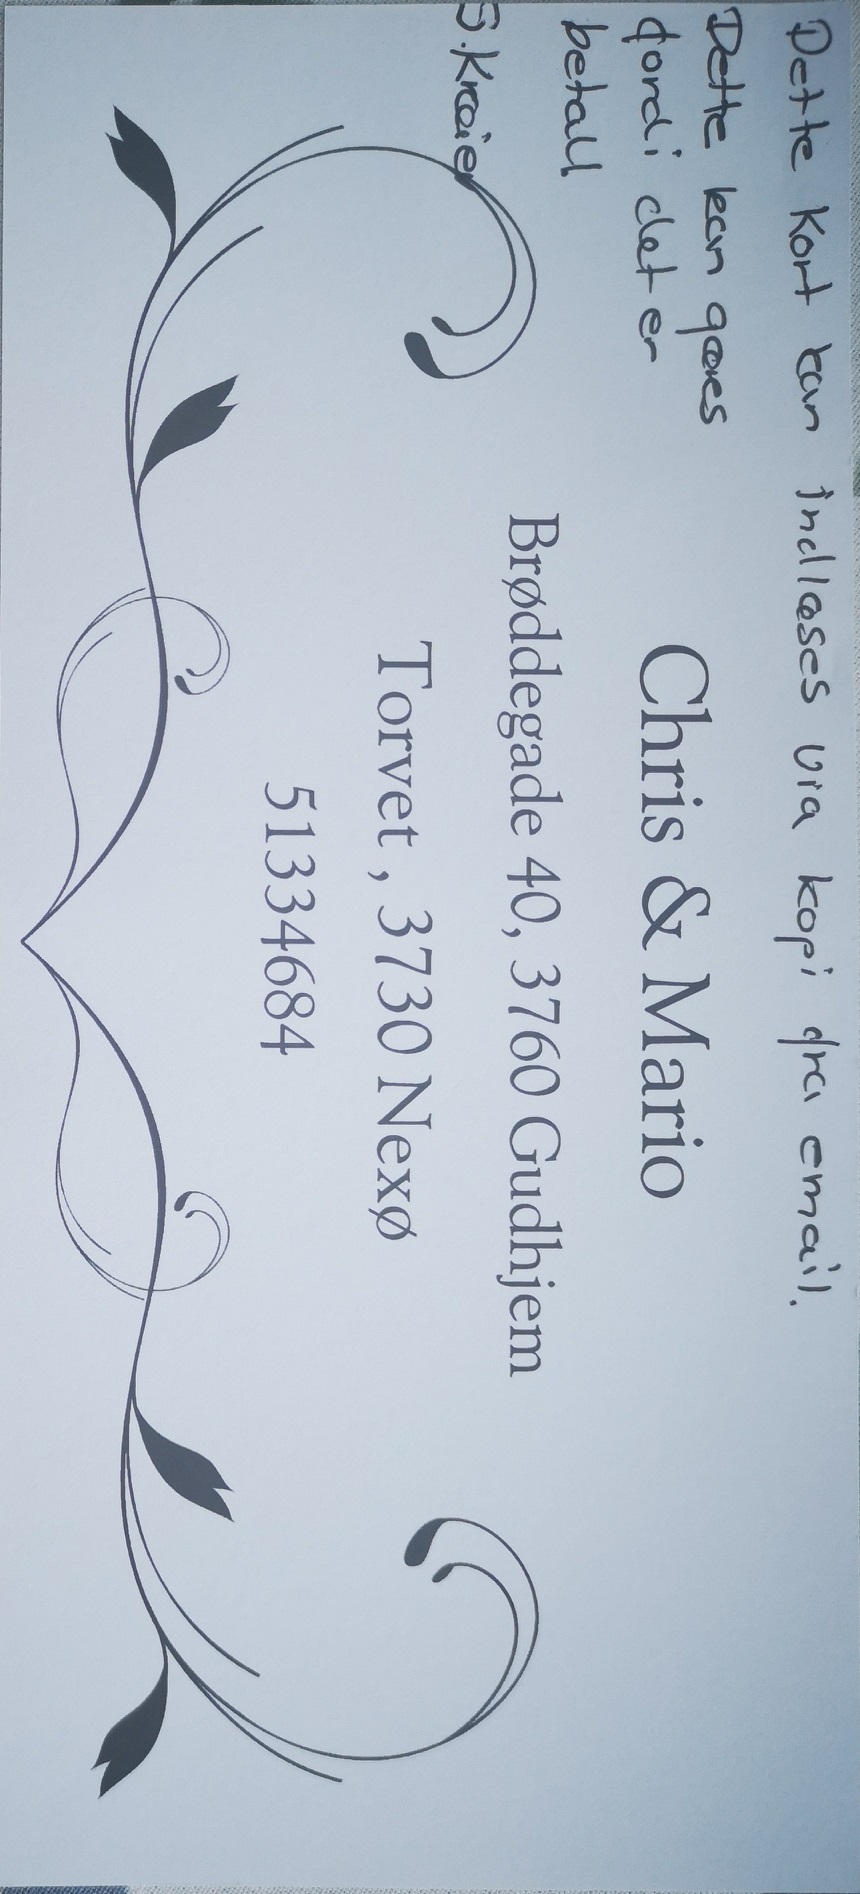 Dette Kort kan indlæses via kopi fra email.
Dette kan gøres
fordi det er
betalt
S. Krøier
Chris & Mario
Brøddegade 40, 3760 Gudhjem
Torvet , 3730 Nexø
51334684